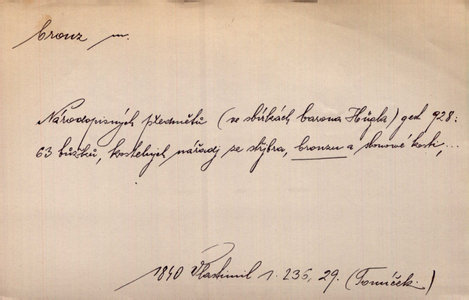 bronz m.
Národopisných předmětů (ve sbírkách barona Hügla) jest 928:
63 bůžků, kostelných nářadj ze střjbra, bronzu a slonowé kosti,...
1840 Vlastimil 1. 235, 29. (Tomíček.)